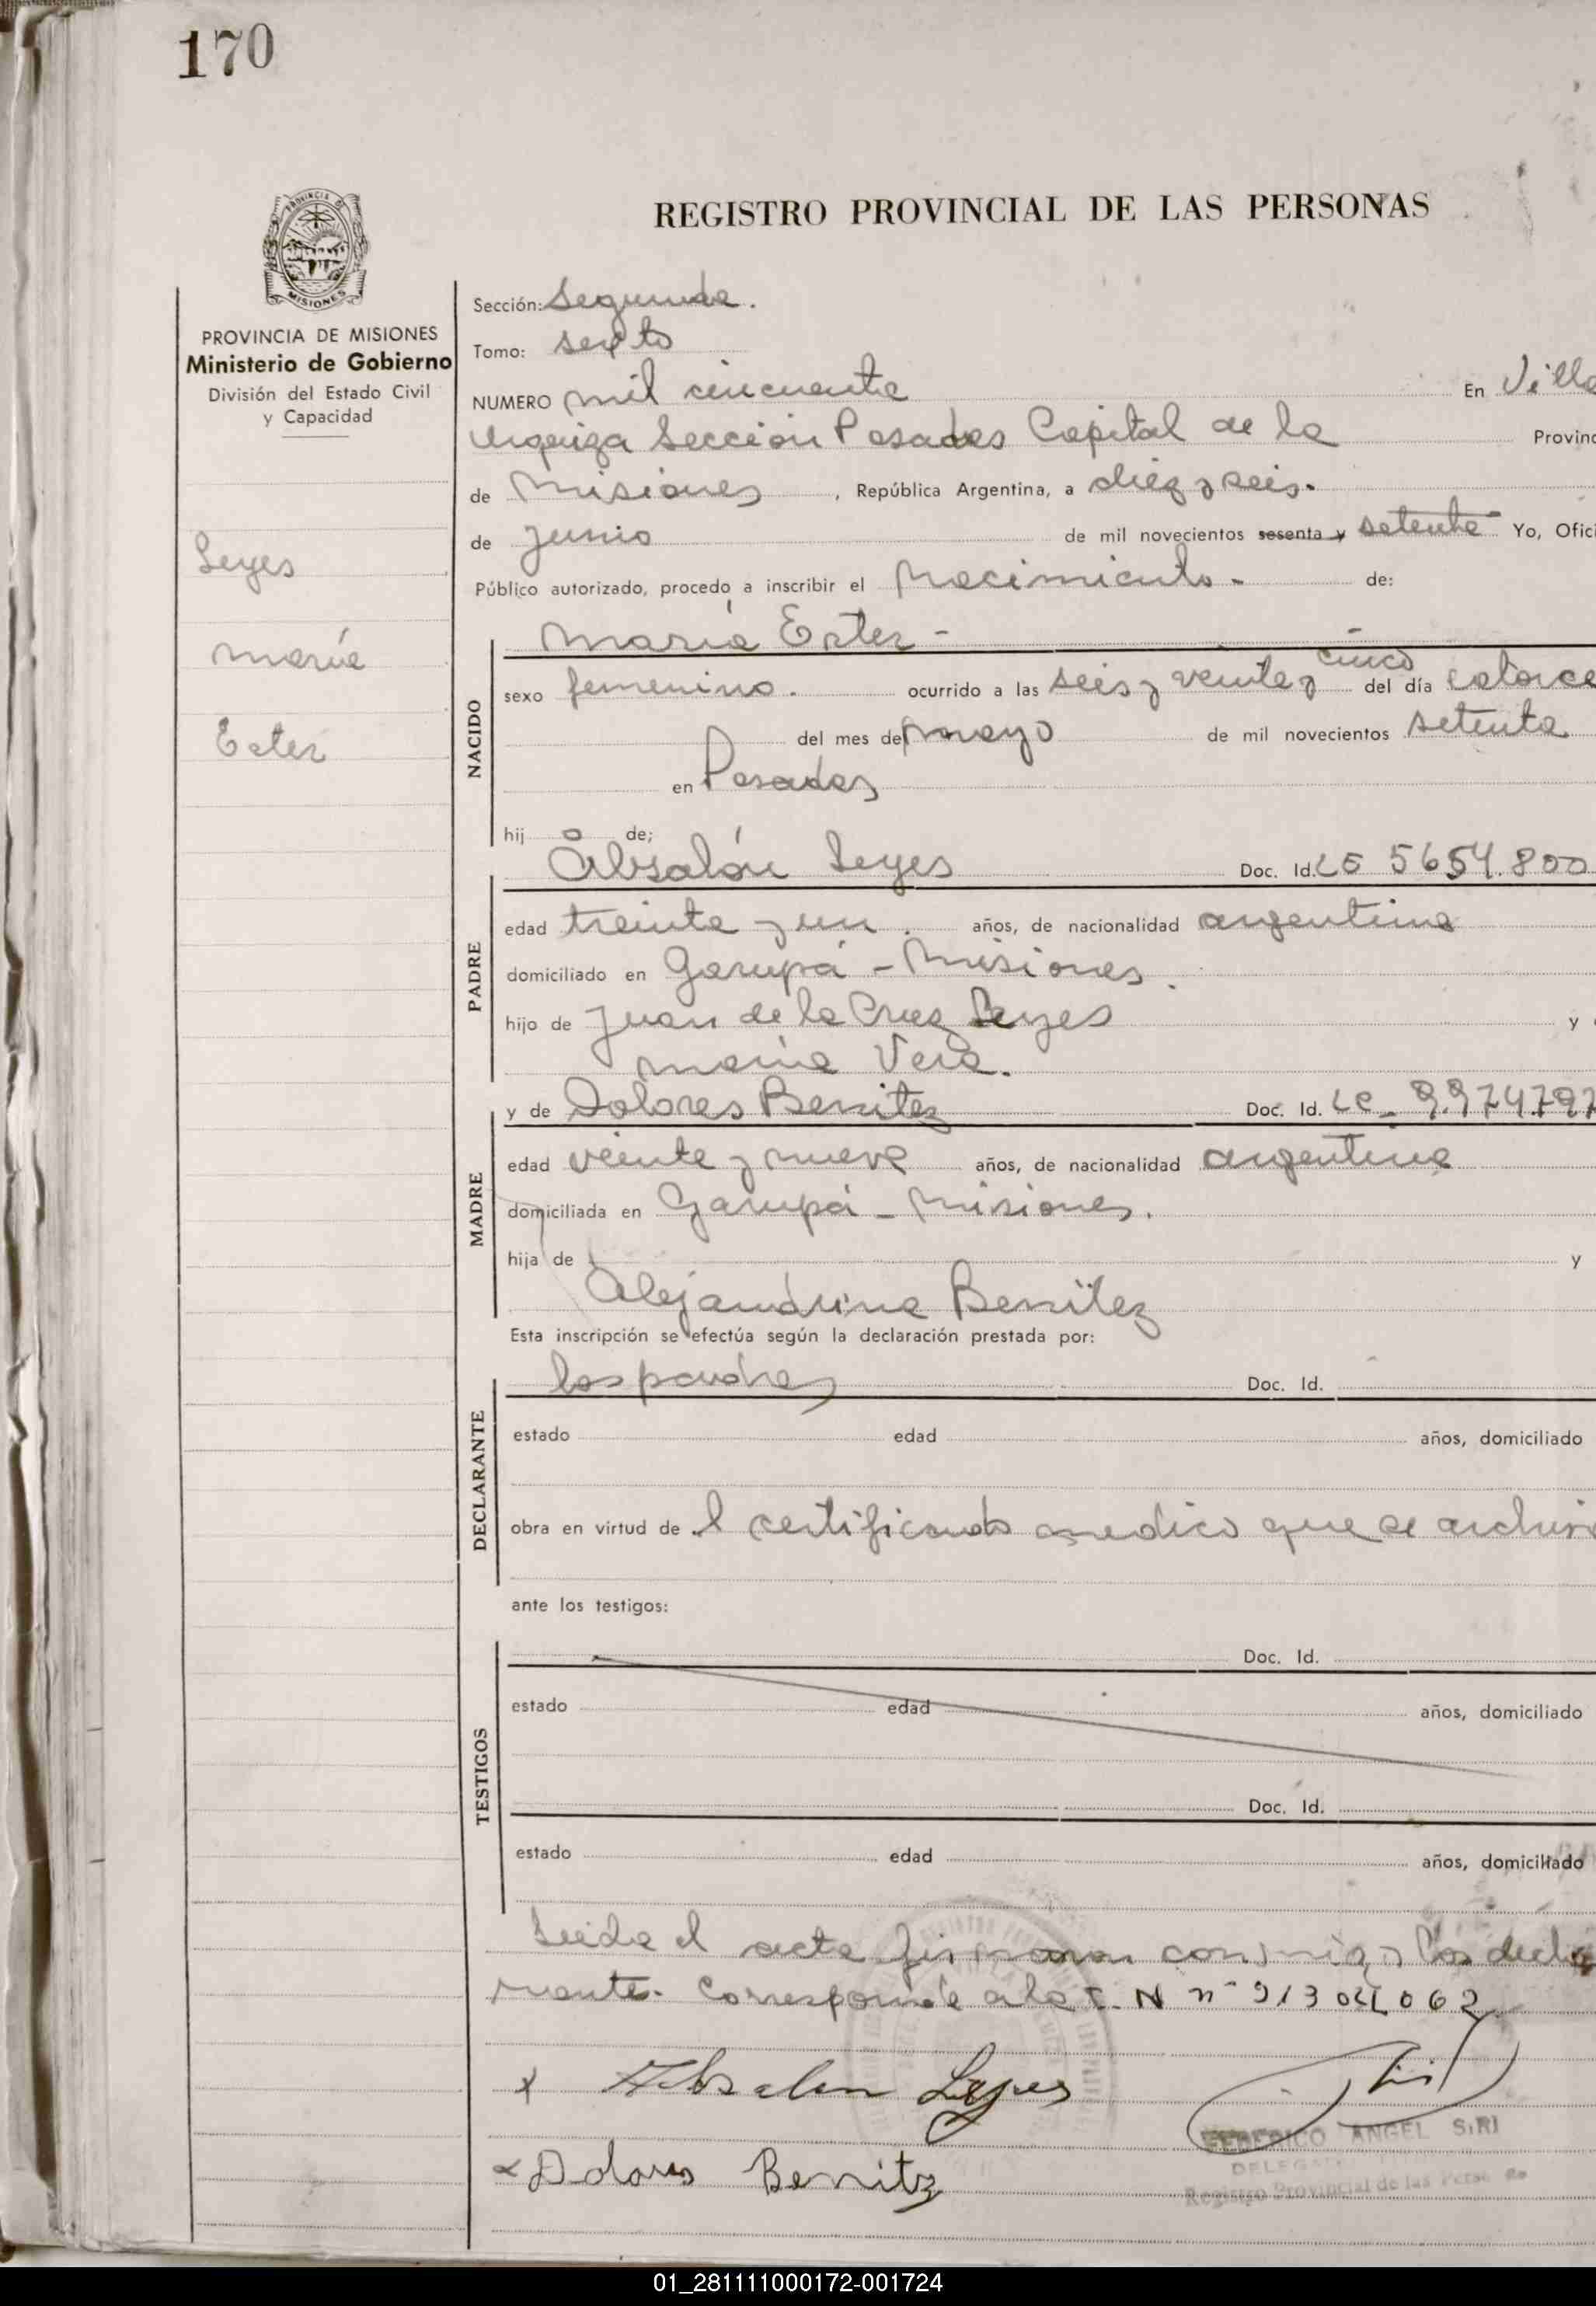 170
PROVINCIA DE MISIONES
REGISTRO PROVINCIAL DE LAS PERSONAS
PROVINCIA DE MISIONES
Ministerio de Gobierno
División del Estado Civil
y Capacidad
Leyes
María
Ester
Sección: Segunda.
Tomo: sexto
NUMERO mil cincuenta En Villa
Urquiza Sección Posadas Capital de la Provinc
de Misiones , República Argentina, a diez y seis.
de Junio de mil novecientos sesenta y setenta Yo, Ofici
Público autorizado, procedo a inscribir el Nacimiento - de:
NACIDO
María Ester -
sexo femenino. ocurrido a las seis y veinte y cinco del día catorce
del mes de mayo de mil novecientos setenta
en Posadas
hij a de;
PADRE
Absalón Leyes Doc. Id. LE 5654.800
edad treinta y un. años, de nacionalidad argentina
domiciliado en Garupá - Misiones.
hijo de Juan de la Cruz Leyes y
María Vera.
MADRE
y de Dolores Benitez Doc. Id. LC - 9.974.797
edad veinte y nueve años, de nacionalidad argentina
domiciliada en Garupá - Misiones.
hija de y
Alejandrina Benitez
Esta inscripción se efectúa según la declaración prestada por:
DECLARANTE
los padres Doc. Id.
estado edad años, domiciliado
obra en virtud de l certificado medico que se archiv
ante los testigos:
TESTIGOS
Doc. Id.
estado edad años, domiciliado
Doc. Id.
estado edad años, domiciliado
Leida el acta firmaron conmigo los decla
rante. Corresponde a la T. N nº 21304062
x Absalon Leyes
x Dolores Benitz
FEDERICO ANGEL SIRI
DELEGA
Registro Provincial de las Perso
01_281111000172-001724